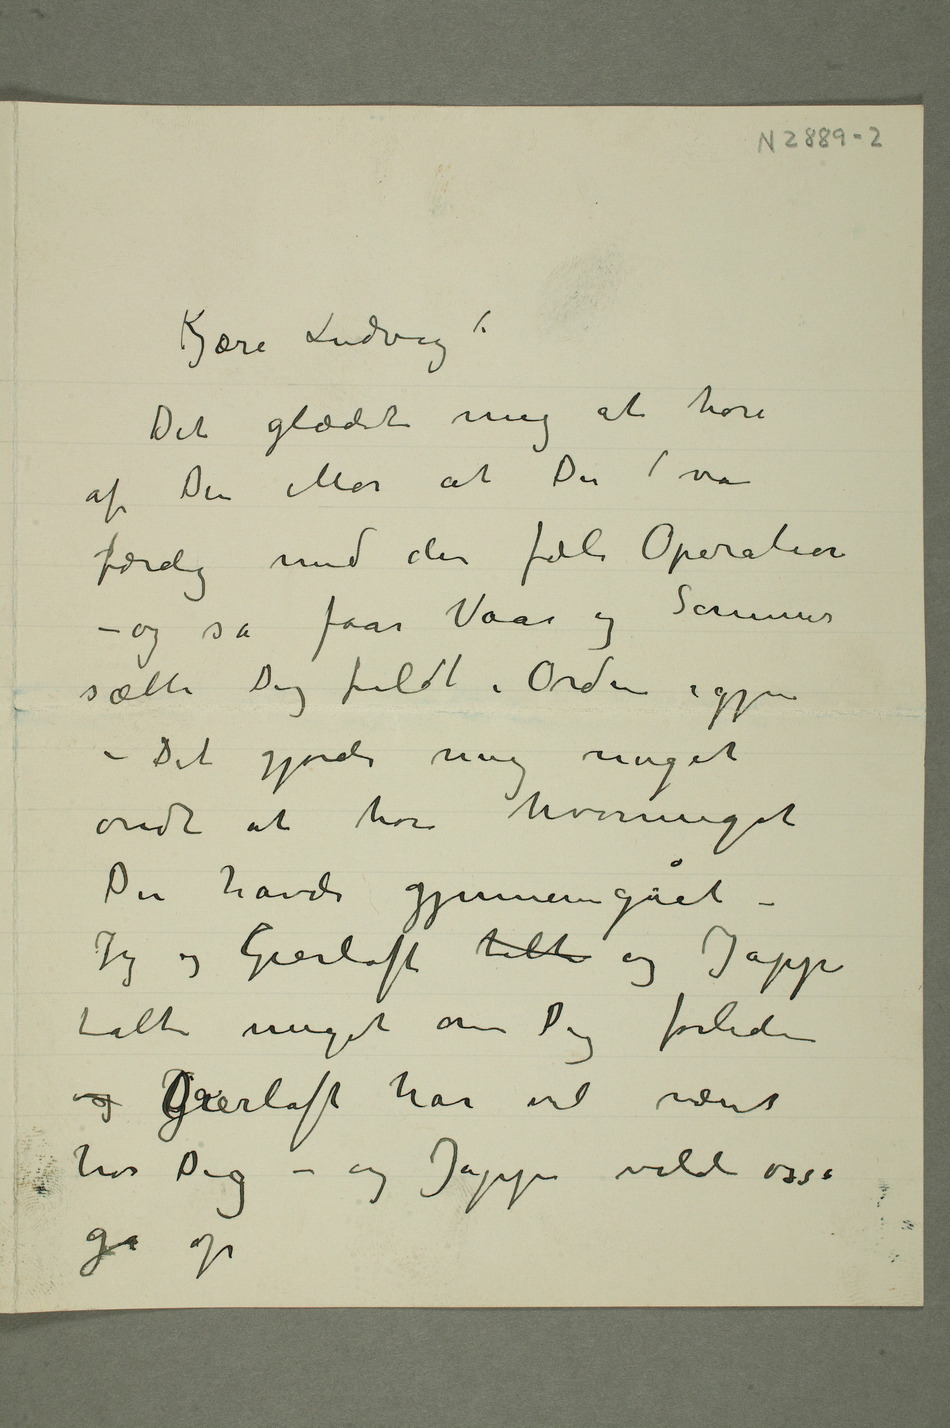 N 2889-2
Kjære Ludvig!
Det glædet mig at høre
af Din Mor at Du var
færdig med den fæle Operation
– og så faar Vaar og Sommer
sætte Dig fuldt i Orden igjen
– Det gjorde mig meget
ondt at høre hvormeget
Du havde gjennemgået –
Jeg og Gierløft talte og Jappe
talte meget om Dig forleden
og Gierløft har vel vært
hos Dig – og Jappe vilde også
gå op